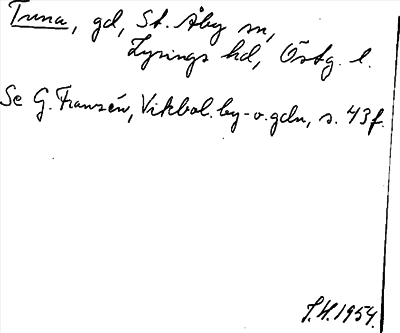 Tuna, gd, St. Åby sn,
Lysings hd, Östg. l.
Se G. Franzén, Vikbol. by- o. gdn, s. 43 f.
S.H. 1954.